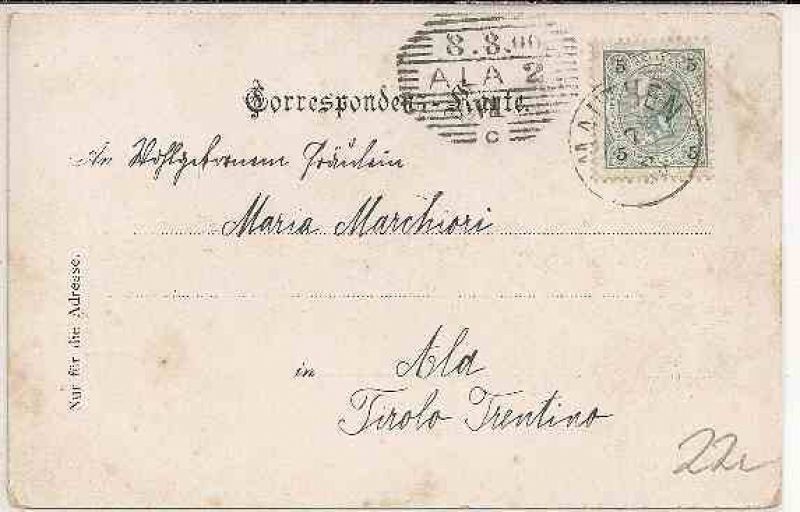 8.8.00
ALA 2
VII
C
MAUTHEN
7
5 5
5 5
Correspondenz-Karte.
An Wohlgebornem Fräulein
Maria Marchiori
Nur für die Adresse.
in Ala
Tirolo Trentino
22